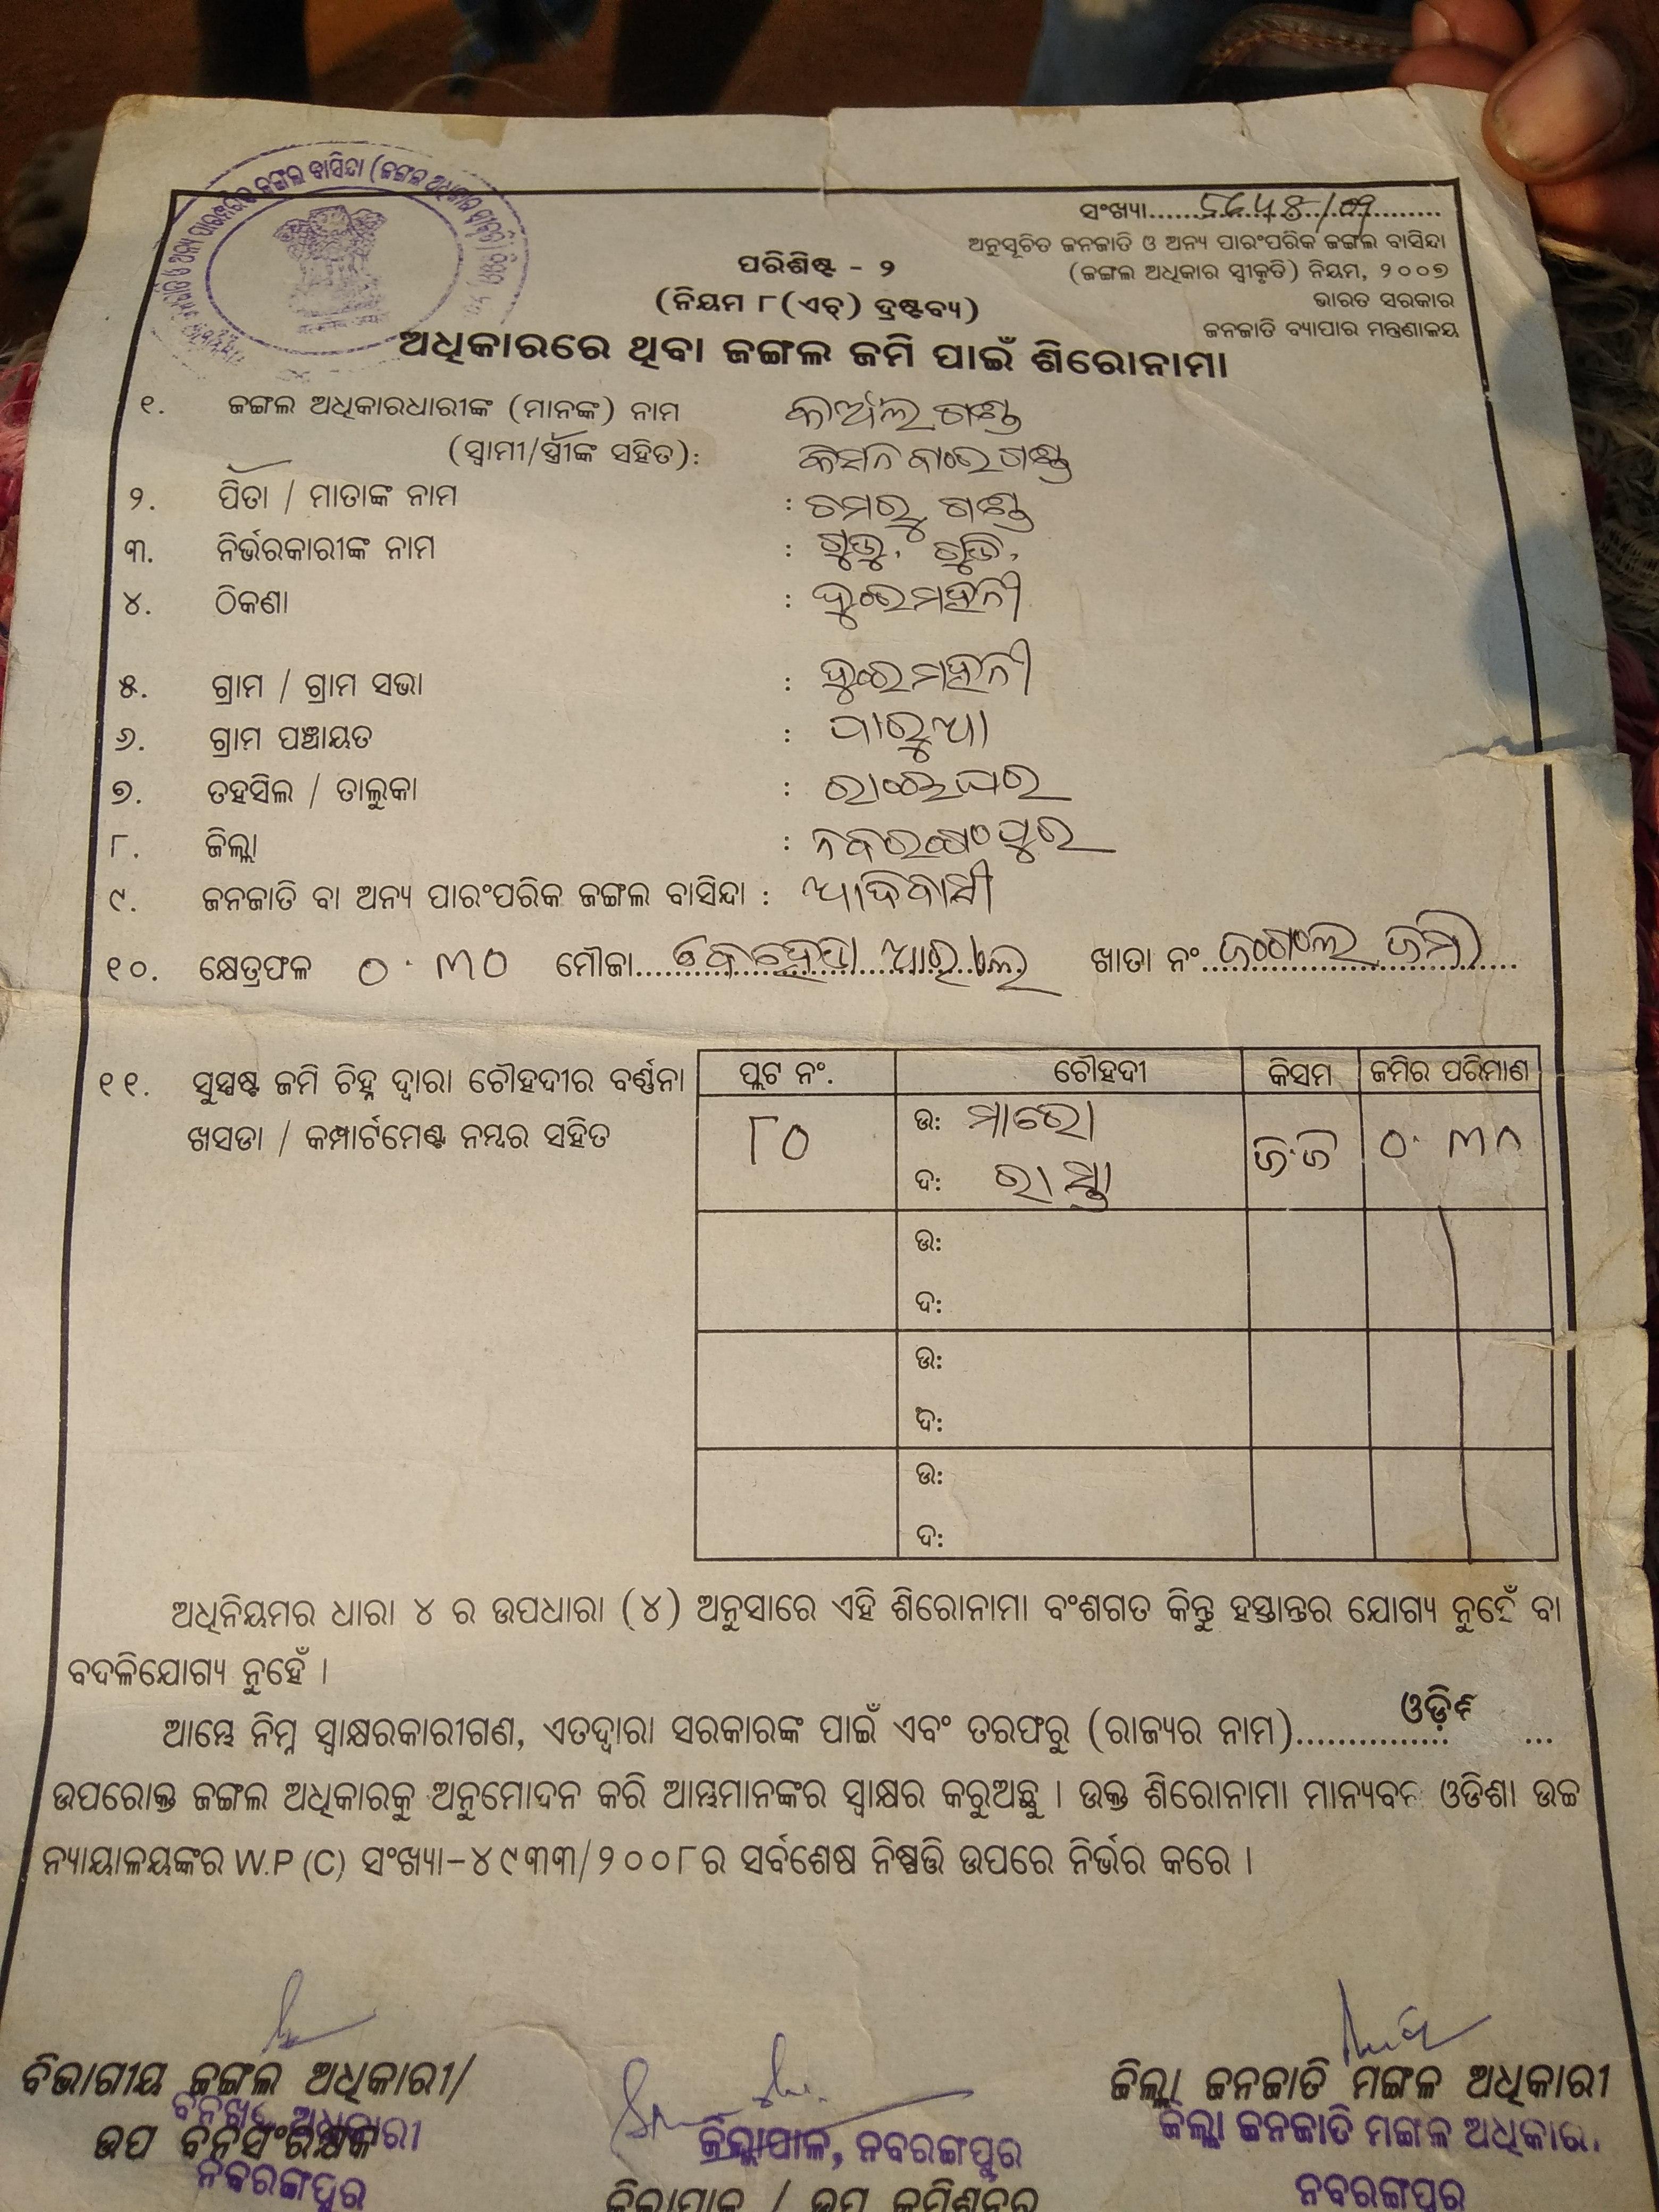 ସଂଖ୍ୟା
ଅନୁସୂଚିତ ଜନଜାତି ଓ ଅନ୍ୟ ପାରଂପରିକ ଜଙ୍ଗଲ ବାସିନ୍ଦା
(ଜଙ୍ଗଲ ଅଧିକାର ସ୍ୱୀକୃତି) ନିୟମ, ୨୦୦୭
ଭାରତ ସରକାର
ଜନଜାତି ବ୍ୟାପାର ମନ୍ତ୍ରଣାଳୟ
ପରିଶିଷ୍ଟ - ୨
(ନିୟମ ୮ (ଏଚ୍) ଦ୍ରଷ୍ଟବ୍ୟ)
ଅଧିକାରରେ ଥିବା ଜଙ୍ଗଲ ଜମି ପାଇଁ ଶିରୋନାମା
୧. ଜଙ୍ଗଲ ଅଧିକାରଧାରୀଙ୍କ (ମାନଙ୍କ) ନାମ
(ସ୍ୱାମୀ/ସ୍ତ୍ରୀଙ୍କ ସହିତ):
୨. ପିତା / ମାତାଙ୍କ ନାମ : ଚମରୁ ଗଣ୍ଡ
୩. ନିର୍ଭରକାରୀଙ୍କ ନାମ :
୪. ଠିକଣା :
୫. ଗ୍ରାମ / ଗ୍ରାମ ସଭା :
୬. ଗ୍ରାମ ପଞ୍ଚାୟତ : ପାରୁଆ
୭. ତହସିଲ / ତାଲୁକା : ରାଇଘର
୮. ଜିଲ୍ଲା : ନବରଙ୍ଗପୁର
୯. ଜନଜାତି ବା ଅନ୍ୟ ପାରଂପରିକ ଜଙ୍ଗଲ ବାସିନ୍ଦା : ଆଦିବାସୀ
୧୦. କ୍ଷେତ୍ରଫଳ ୦.୩୦ ମୌଜା ଖାତା ନଂ ଜଙ୍ଗଲ ଜମି
୧୧. ସୁସ୍ପଷ୍ଟ ଜମି ଚିହ୍ନ ଦ୍ୱାରା ଚୌହଦୀର ବର୍ଣ୍ଣନା ପ୍ଲଟ ନଂ. ଚୌହଦୀ କିସମ ଜମିର ପରିମାଣ
ଖସଡା / କମ୍ପାର୍ଟମେଣ୍ଟ ନମ୍ବର ସହିତ ୮୦ ଉ: ମାରୋ ଜ.ଜ ୦.୩୦
ଦ: ରାସ୍ତା
ଉ:
ଦ:
ଉ:
ଦ:
ଉ:
ଦ:
ଅଧିନିୟମର ଧାରା ୪ ର ଉପଧାରା (୪) ଅନୁସାରେ ଏହି ଶିରୋନାମା ବଂଶଗତ କିନ୍ତୁ ହସ୍ତାନ୍ତର ଯୋଗ୍ୟ ନୁହେଁ ବା
ବଦଳିଯୋଗ୍ୟ ନୁହେଁ ।
ଆମ୍ଭେ ନିମ୍ନ ସ୍ୱାକ୍ଷରକାରୀଗଣ, ଏତଦ୍ୱାରା ସରକାରଙ୍କ ପାଇଁ ଏବଂ ତରଫରୁ (ରାଜ୍ୟର ନାମ)
ଉପରୋକ୍ତ ଜଙ୍ଗଲ ଅଧିକାରକୁ ଅନୁମୋଦନ କରି ଆମ୍ଭମାନଙ୍କର ସ୍ୱାକ୍ଷର କରୁଅଛୁ । ଉକ୍ତ ଶିରୋନାମା ମାନ୍ୟବର ଓଡିଶା ଉଚ୍ଚ
ନ୍ୟାୟାଳୟଙ୍କର W.P (C) ସଂଖ୍ୟା-୪୯୩୩/୨୦୦୮ର ସର୍ବଶେଷ ନିଷ୍ପତ୍ତି ଉପରେ ନିର୍ଭର କରେ ।
ବିଭାଗୀୟ ଜଙ୍ଗଲ ଅଧିକାରୀ/
ଉପ ବନସଂରକ୍ଷକ
ନବରଙ୍ଗପୁର
ଜିଲ୍ଲାପାଳ, ନବରଙ୍ଗପୁର
ଜିଲ୍ଲାପାଳ / ଉପ କମିଶନର
ଜିଲ୍ଲା ଜନଜାତି ମଙ୍ଗଳ ଅଧିକାରୀ
ଜିଲ୍ଲା ଜନଜାତି ମଙ୍ଗଳ ଅଧିକାରୀ
ନବରଙ୍ଗପୁର